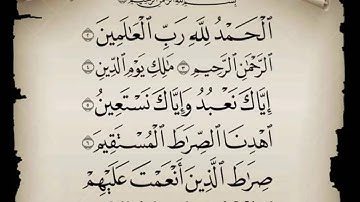 بِسْمِ ٱللَّهِ ٱلرَّحْمَٰنِ ٱلرَّحِيمِ
ٱلْحَمْدُ لِلَّهِ رَبِّ ٱلْعَٰلَمِينَ ٢
ٱلرَّحْمَٰنِ ٱلرَّحِيمِ ٣ مَٰلِكِ يَوْمِ ٱلدِّينِ ٤
إِيَّاكَ نَعْبُدُ وَإِيَّاكَ نَسْتَعِينُ ٥
ٱهْدِنَا ٱلصِّرَٰطَ ٱلْمُسْتَقِيمَ ٦
صِرَٰطَ ٱلَّذِينَ أَنْعَمْتَ عَلَيْهِمْ